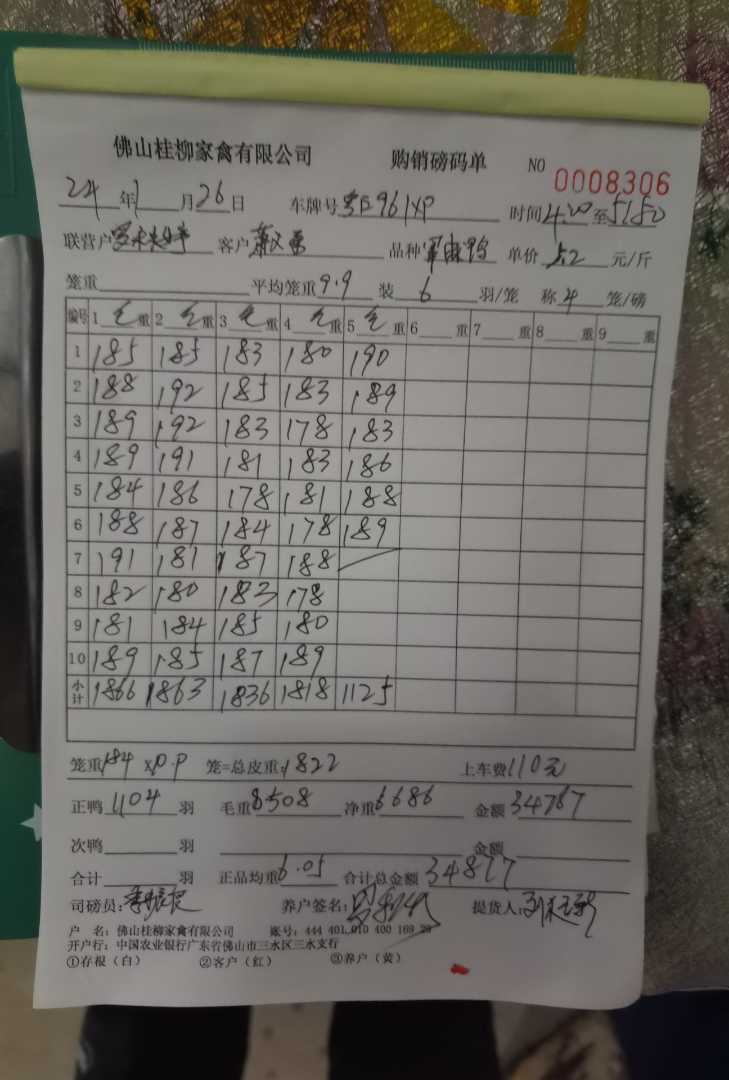 佛山桂柳家禽有限公司 购销磅码单 NO 0008306
24年1月26日 车牌号 961XP 时间4:20至5:50
联营户 客户 品种 单价5.2元/斤
笼重 平均笼重9.9 装6羽/笼 称4笼/磅
编号 1毛重 2毛重 3毛重 4毛重 5毛重 6重 7重 8重 9重
1 185 185 183 180 190
2 188 192 185 183 189
3 189 192 183 178 183
4 189 191 181 183 186
5 184 186 178 181 188
6 188 187 184 178 189
7 191 181 187 188
8 182 180 183 178
9 181 184 185 180
10 189 185 187 189
小计 1866 1863 1836 1818 1125
笼重184 X 9.9 笼=总皮重1822 上车费110元
正鸭1104羽 毛重8508 净重6686 金额34767
次鸭 羽 金额
合计 羽 正品均重6.05 合计总金额34877
司磅员: 养户签名: 提货人:
户 名: 佛山桂柳家禽有限公司 账号: 444 401 010 400 169 28
开户行: 中国农业银行广东省佛山市三水区三水支行
①存根(白) ②客户(红) ③养户(黄)